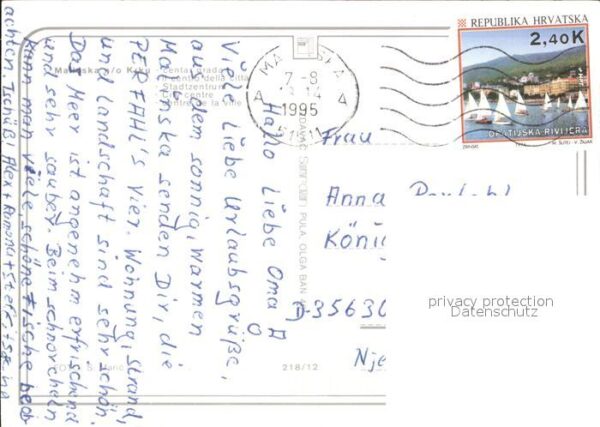 REPUBLIKA HRVATSKA
2,40K
OPATIJSKA RIVIJERA
MALINSKA
7-8
1995
Malinska o/o Krk
centar grada
Centro della città
Stadtzentrum
City centre
Centre de la ville
Hallo Liebe Oma
Viele Liebe Urlaubsgrüße,
aus dem sonnig, warmen
Malinska senden Dir, die
vier. Wohnung, Strand,
und Landschaft sind sehr schön.
Das Meer ist angenehm erfrischend
und sehr sauber. Beim schnorcheln
kann man viele, schöne Fische beob
achten. Tschüß! Alex + Ramona +
Frau
Anna
D-35630
218/12
PULA, OLGA BAN
privacy protection
Datenschutz